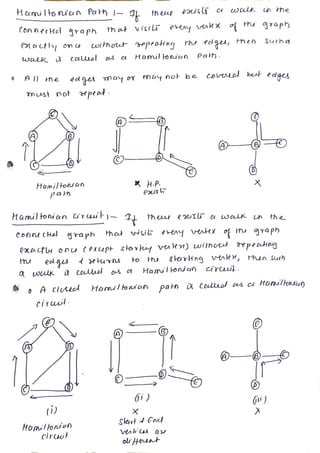 Hamiltonian Path :- If there exists a walk in the
connected graph that visits every vertex of the graph
exactly once without repeating the edges, then such a
walk is called as a Hamiltonian Path.
All the edges may or may not be covered but edges
must not repeat.
Hamiltonian
path
H.P.
exist
X
Hamiltonian Circuit :- If there exists a walk in the
connected graph that visits every vertex of the graph
exactly once (except starting vertex) without repeating
the edges & returns to the starting vertex, then such
a walk is called as a Hamiltonian circuit.
A closed Hamiltonian path is called as a Hamiltonian
circuit.
(i)
Hamiltonian
circuit
(ii)
X
Start & End
vertices are
different
(iii)
X